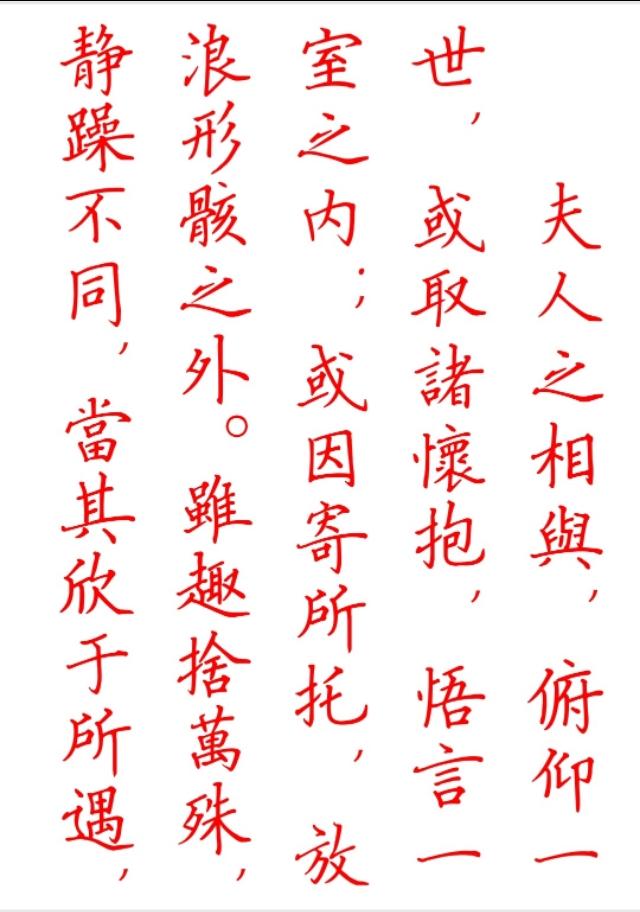 夫人之相與，俯仰一
世，或取諸懷抱，悟言一
室之内；或因寄所托，放
浪形骸之外。雖趣捨萬殊，
静躁不同，當其欣于所遇，